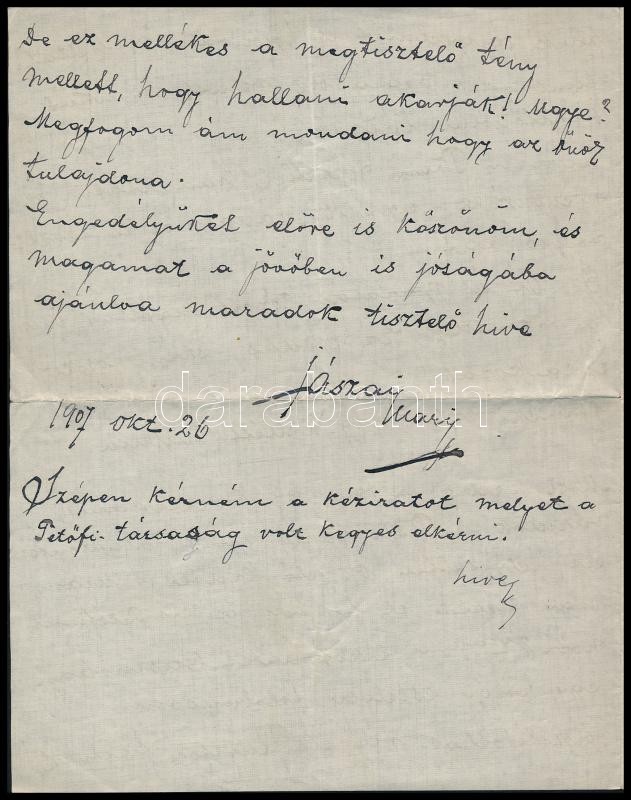 De ez mellékes a megtisztelő tény
mellett, hogy hallani akarják! Ugye?
Megfogom ám mondani hogy az
tulajdona.
Engedélyüket előre is köszönöm, és
magamat a jövőben is jóságába
ajánlva maradok tisztelő hive
Jászai
Mari
1907 okt. 26
Szépen kérném a kéziratot melyet a
Petőfi-társaság volt kegyes elkérni.
hive
darabanth